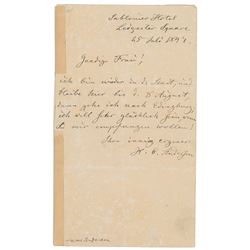 Sablonier Hotel
Leicester Square
25 Juli 1847
Gnädige Frau!
ich bin wieder in d. Stadt, und
bleibe hier bis d. 5 August,
dann gehe ich nach Edinburg,
ich will sehr glücklich sein wenn
Sie mir empfangen wollen!
Ihr innig ergeben
H. C. Andersen